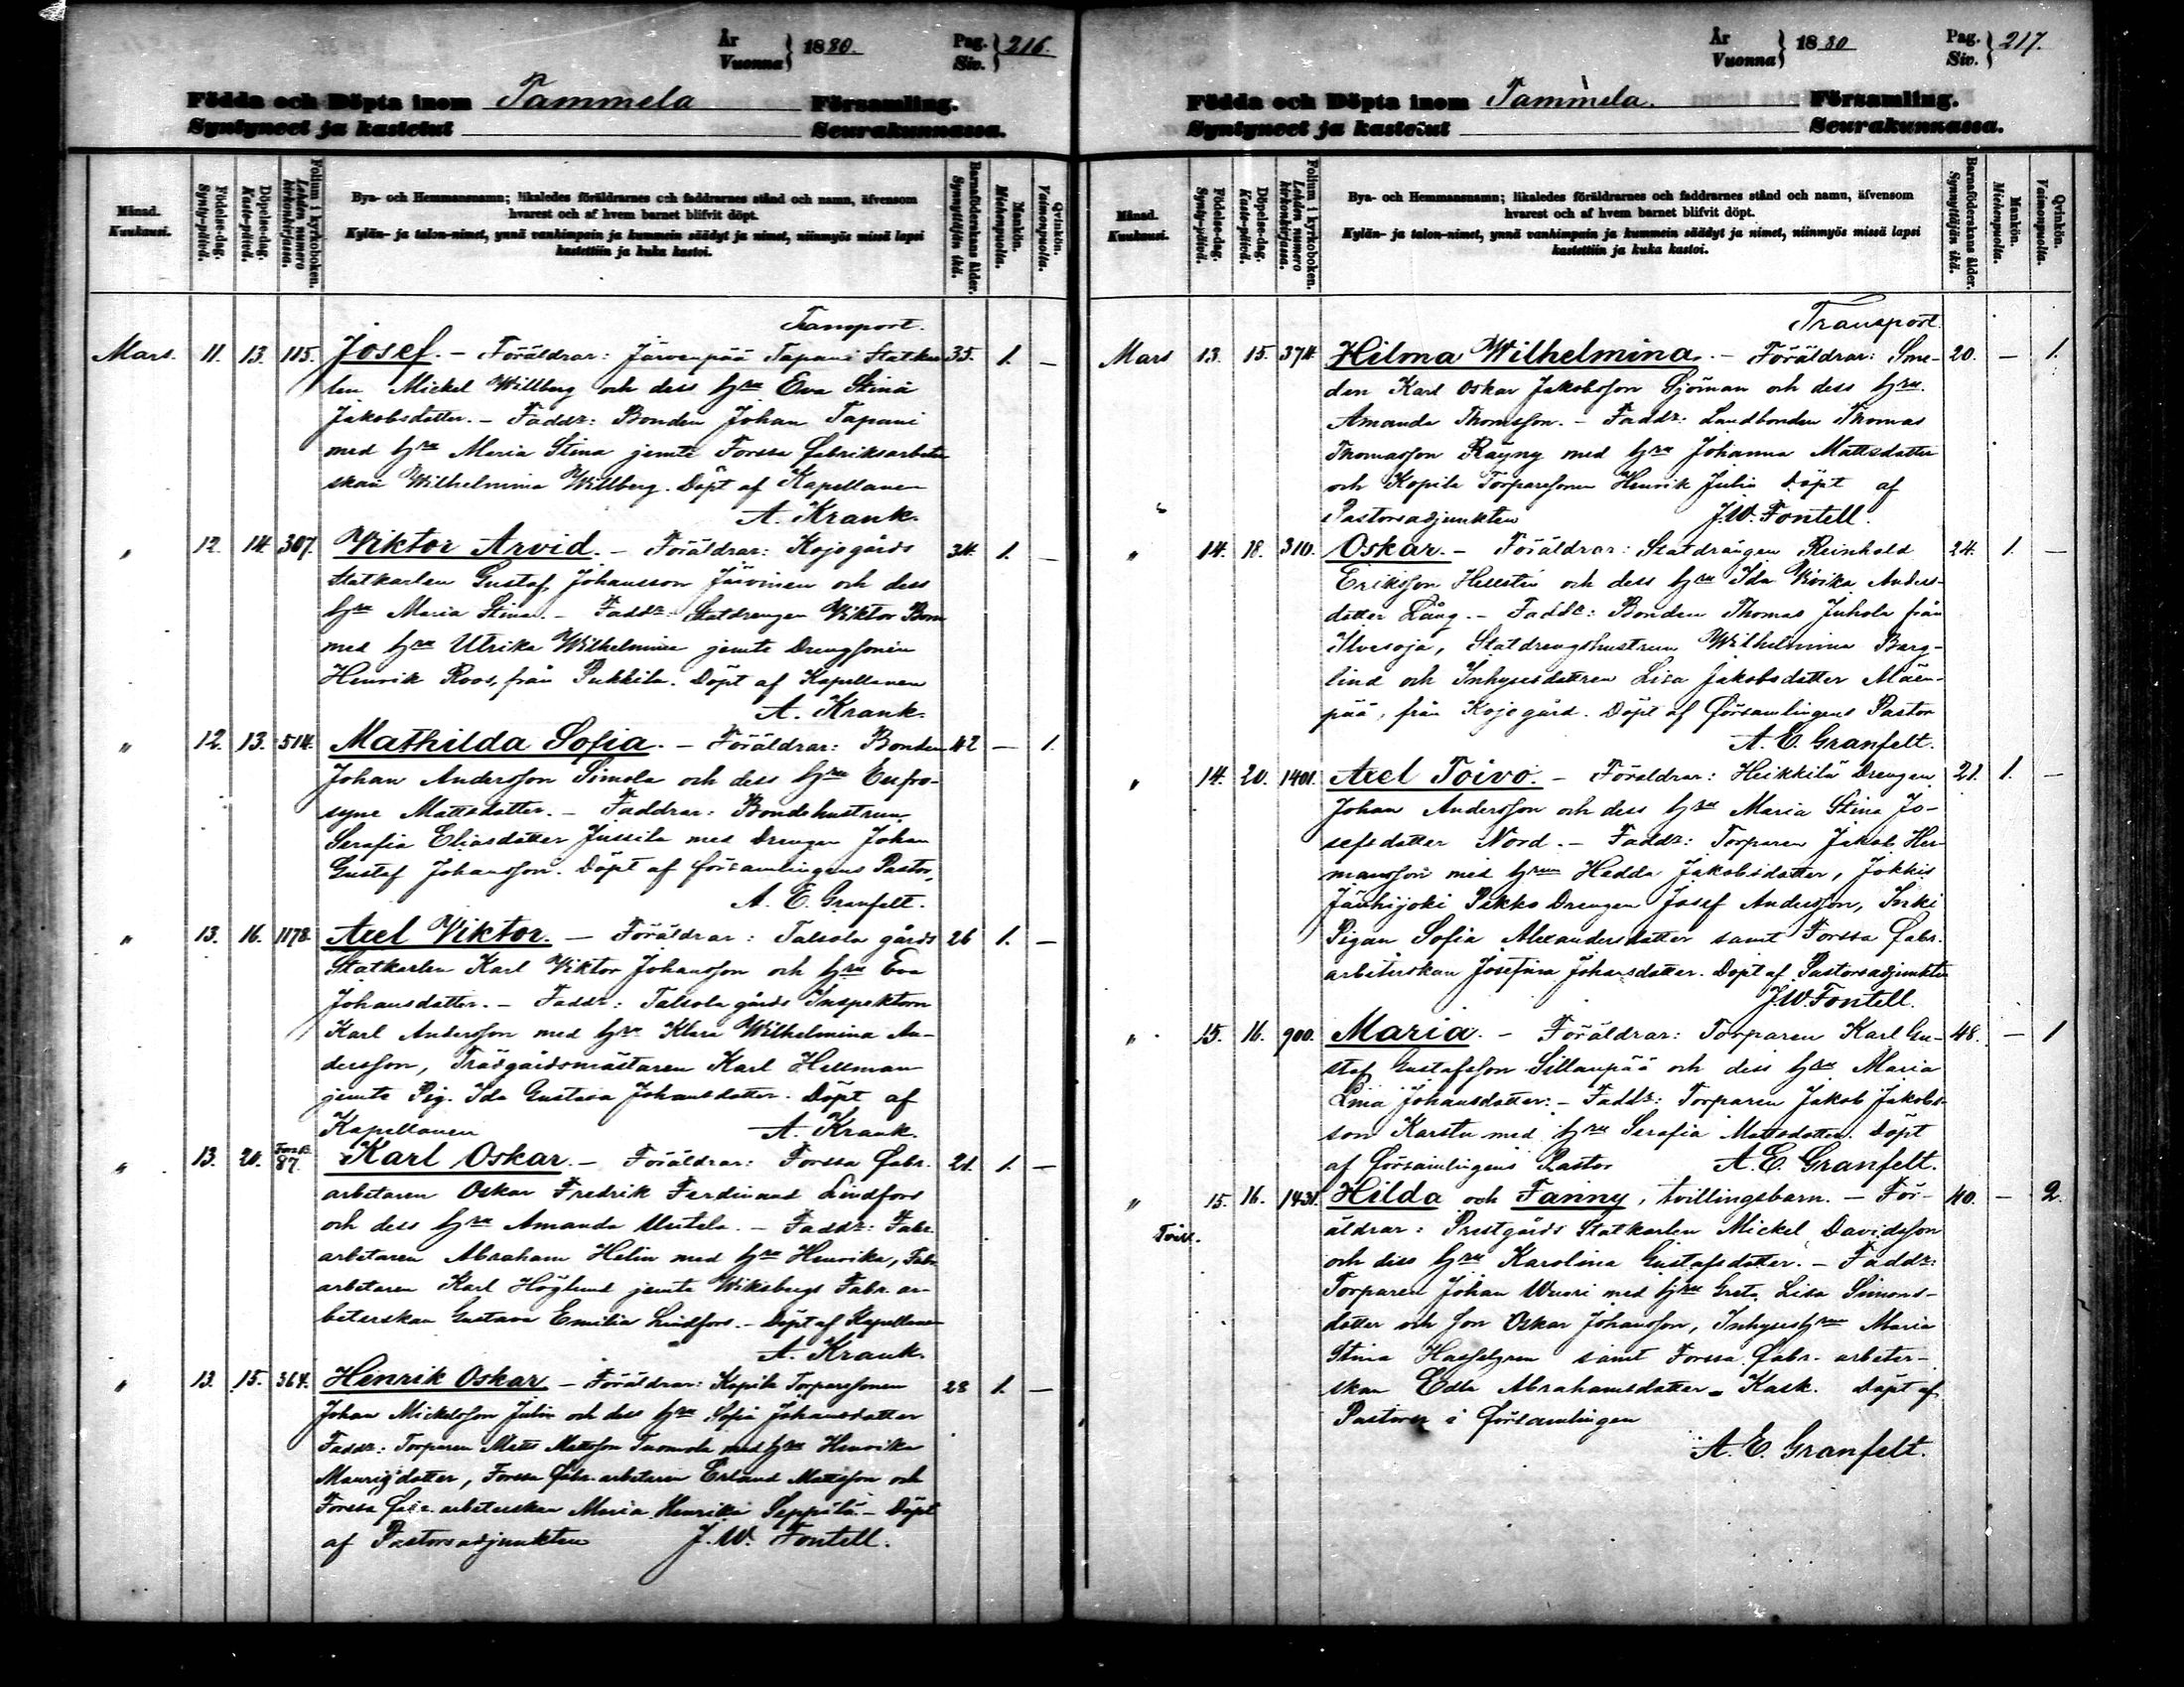 År
Vuonna } 1880.
Pag.
Siv. } 216.
Födda och Döpta inom Tammela Församling.
Syntyneet ja kastetut Seurakunnassa.
Månad.
Kuukausi.
Födelse-dag.
Synty-päivä.
Döpelse-dag.
Kaste-päivä.
Folium i kyrkoboken.
Lehden numero kirkonkirjassa.
Bya- och Hemmansnamn; likaledes föräldrarnes och faddrarnes stånd och namn, äfvensom
hvarest och af hvem barnet blifvit döpt.
Kylän- ja talon-nimet, ynnä vanhimpain ja kummein säädyt ja nimet, niinmyös missä lapsi
kastettiin ja kuka kastoi.
Barnaföderskans ålder.
Synnyttäjän ikä.
Mankön.
Miehenpuolia.
Qvinkön.
Vaimonpuolia.
Transport.
Mars. 11. 13. 115. Josef. - Föräldrar: Järvenpää Tapani Statkar- 35. 1. —
len Mickel Willberg och dess hru Eva Stina
Jakobsdotter. - Faddr: Bonden Johan Tapani
med hru Maria Stina jemte Forssa fabriksarbeter
skan Wilhelmina Willberg. Döpt af Kapellanen
A. Krank.
" 12. 14. 307. Viktor Arvid. - Föräldrar: Kojo gårds 34. 1. —
Statkarlen Gustaf Johansson Järvinen och dess
hru Maria Stina. - Faddr: Statdrengen Viktor Bom
med hru Ulrika Wilhelmina jemte Drengsonen
Henrik Roos, från Pukkila. Döpt af Kapellanen
A. Krank.
" 12. 13. 514. Mathilda Sofia. - Föräldrar: Bonden 42 — 1.
Johan Andersson Simola och dess hru Eufro-
syne Mattsdotter. - Faddrar: Bondehustrun
Serafia Eliasdotter Jussila med Drengen Johan
Gustaf Johansson. Döpt af församlingens Pastor,
A. E. Granfelt.
" 13. 16. 1178. Axel Viktor. - Föräldrar: Talsola gårds 26 1. —
Statkarlen Karl Viktor Johansson och hru Eva
Johansdotter. - Faddr: Talsola gårds Inspektorn
Karl Andersson med hru Klara Wilhelmina An-
dersson, Trädgårdsmästaren Karl Hellman
jemte Pig. Ida Gustava Johansdotter. Döpt af
Kapellanen A. Krank.
" 13. 20. 87. Karl Oskar. - Föräldrar: Forssa fabr. 21. 1. —
arbetaren Oskar Fredrik Ferdinand Lindfors
och dess hru Amanda Uutela. - Faddr: Fabr.
arbetaren Abraham Helin med hru Henrika, Fabr
arbetaren Karl Höglund jemte Wiksbergs Fabr. ar-
beterskan Gustava Emilia Lindfors. - Döpt af Kapellanen
A. Krank.
" 13. 15. 364. Henrik Oskar - Föräldrar: Kopila Torparesonen 28 1. —
Johan Mickelsson Julin och dess hru Sofia Johansdotter
Faddr: Torparen Matts Mattsson Tuomola med hru Henrika
Maurizdotter, Forssa fabr. arbetaren Erland Mattsson och
Forssa fabr. arbeterskan Maria Henrika Seppälä - Döpt
af Pastorsadjunkten J. W. Fontell.
År
Vuonna } 1880
Pag.
Siv. } 217.
Födda och Döpta inom Tammela. Församling.
Syntyneet ja kastetut Seurakunnassa.
Månad.
Kuukausi.
Födelse-dag.
Synty-päivä.
Döpelse-dag.
Kaste-päivä.
Folium i kyrkoboken.
Lehden numero kirkonkirjassa.
Bya- och Hemmansnamn; likaledes föräldrarnes och faddrarnes stånd och namn, äfvensom
hvarest och af hvem barnet blifvit döpt.
Kylän- ja talon-nimet, ynnä vanhimpain ja kummein säädyt ja nimet, niinmyös missä lapsi
kastettiin ja kuka kastoi.
Barnaföderskans ålder.
Synnyttäjän ikä.
Mankön.
Miehenpuolia.
Qvinkön.
Vaimonpuolia.
Transport.
Mars 13. 15. 374. Hilma Wilhelmina. - Föräldrar: Sme- 20. — 1.
den Karl Oskar Jakobsson Sjöman och dess hru.
Amanda Thomsson. - Faddr: Landbonden Thomas
Thomasson Räyny med hru Johanna Mattsdotter
och Kopila Torparesonen Henrik Julin Döpt af
Pastorsadjunkten J. W. Fontell.
" 14. 18. 310. Oskar. - Föräldrar: Statdrängen Reinhold 24. 1. —
Eriksson Hellstén och dess hru Ida Wivika Anders-
dotter Lång. - Faddr: Bonden Thomas Juhola från
Ilvesoja, Statdrengshustrun Wilhelmina Barg-
lind och Inhysesdottren Lisa Jakobsdotter Mäen-
pää, från Kojo gård. Döpt af församlingens Pastor
A. E. Granfelt.
" 14. 20. 1401. Axel Toivo. - Föräldrar: Heikkilä Drengen 21. 1. —
Johan Andersson och dess hru Maria Stina Jo-
sefsdotter Nord. - Faddr: Torparen Jakob Her-
mansson med hrun Hedda Jakobsdotter, Jokkis
Jänhijoki Pekko Drengen Josef Andersson, Surki
Pigan Sofia Alexandersdotter samt Forssa fabr.
arbeterskan Josefina Johansdotter. Döpt af Pastorsadjunkten
J. W. Fontell.
" 15. 16. 900. Maria. - Föräldrar: Torparen Karl Gu- 48. — 1
staf Gustafsson Sillanpää och dess hru Maria
Lina Johansdotter. - Faddr: Torparen Jakob Jakobs-
son Karstu med hru Serafia Mattsdotter. Döpt
af församlingens Pastor A. E. Granfelt.
" 15. 16. 1431. Hilda och Fanny, tvillingsbarn. - För- 40. — 2.
äldrar: Prestgårds Statkarlen Mickel Davidsson
och dess hru Karolina Gustafsdotter. - Faddr:
Torparen Johan Wuori med hru Greta Lisa Simons-
dotter och son Oskar Johansson, Inhyseshru Maria
Stina Hasselgren samt Forssa fabr. arbeter-
skan Edla Abrahamsdotter Kask. Döpt af
Pastorn i församlingen
A. E. Granfelt.